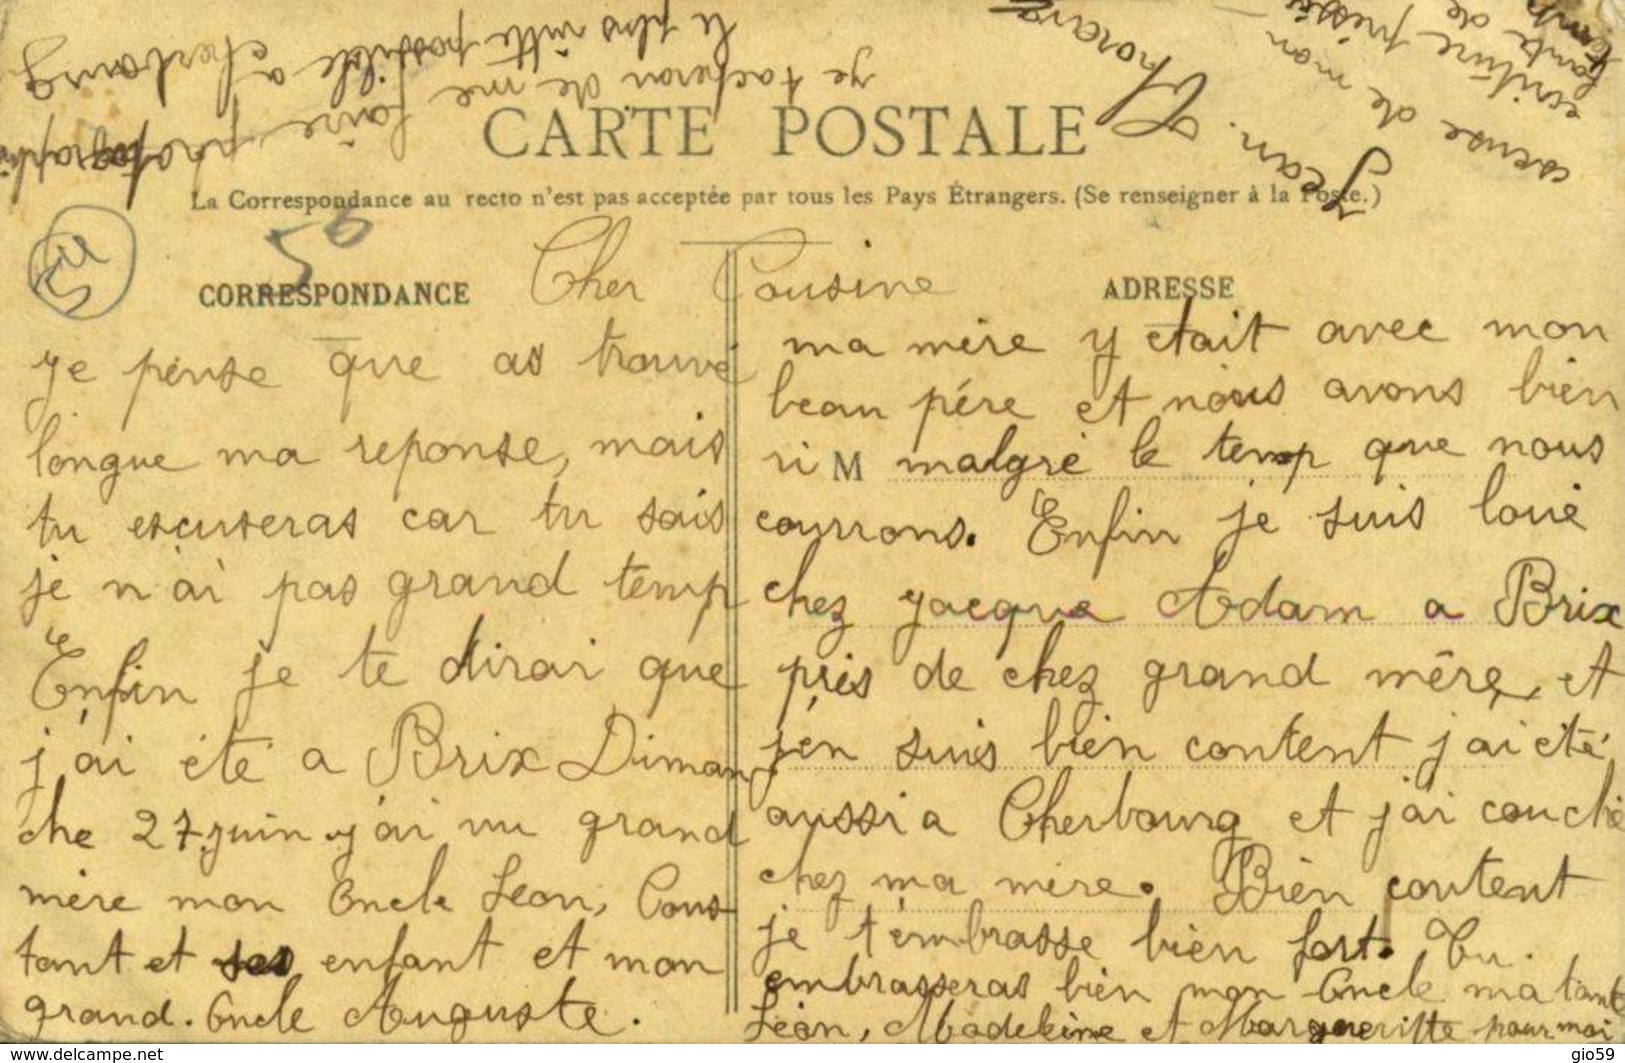 CARTE POSTALE
La Correspondance au recto n'est pas acceptée par tous les Pays Étrangers. (Se renseigner à la Poste.)
CORRESPONDANCE
ADRESSE
50
Cher Cousine
ye pense que as trouvé
longue ma reponse, mais
tu escuseras car tu sais
je n'ai pas grand temp
Enfin je te dirai que
j'ai éte a Brix Diman
che 27 juin y'ai vu grand
mère mon Oncle Leon, Cons
tant et ses enfant et mon
grand. Oncle Auguste.
ma mère y etait avec mon
beau pére et nous avons bien
ri M malgré le temp que nous
courrons. Enfin je suis loué
chez yacque Adam a Brix
près de chez grand mêre, et
j'en suis bien content j'ai été
aussi a Cherbourg et j'ai couché
chez ma mère. Bien content
je t'embrasse bien fort. Tu.
embrasseras bien mon Oncle ma tante
Léon, Madeleine et Margueritte pour moi
ye tacheron de me faire photographi
le plus vitte possible a cherbourg
Jean. Thorang
escuse de mon
ecriture pressée
fante de
temp
delcampe.net
gio59